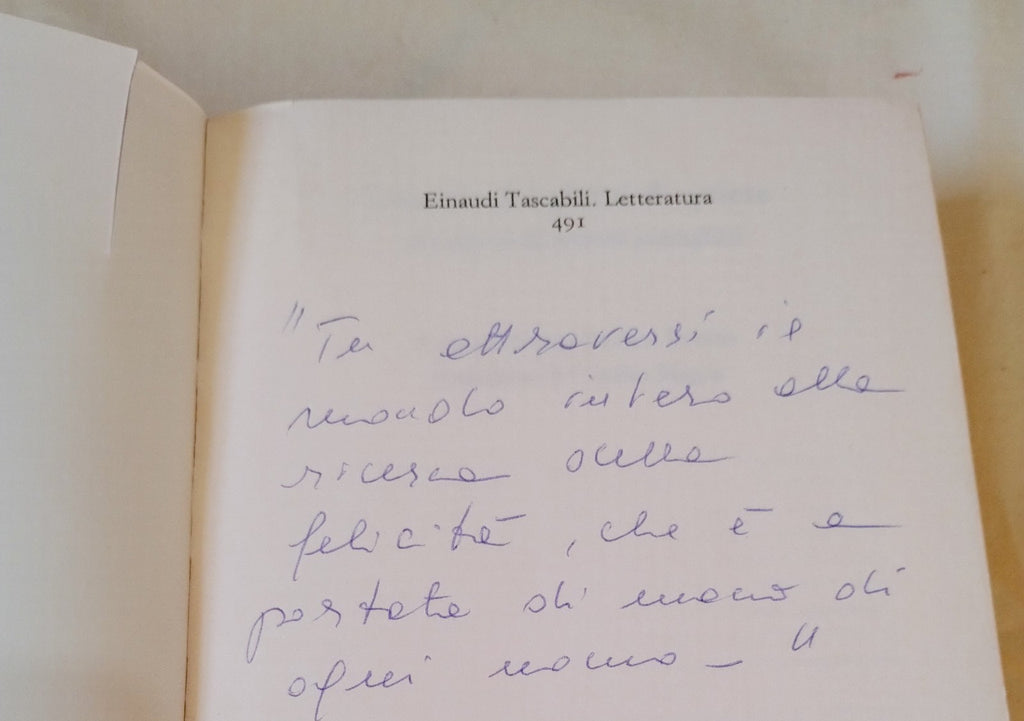 Einaudi Tascabili. Letteratura
491
"Tu attraversi il
mondo intero alla
ricerca della
felicità, che è a
portata di mano di
ogni uomo - "